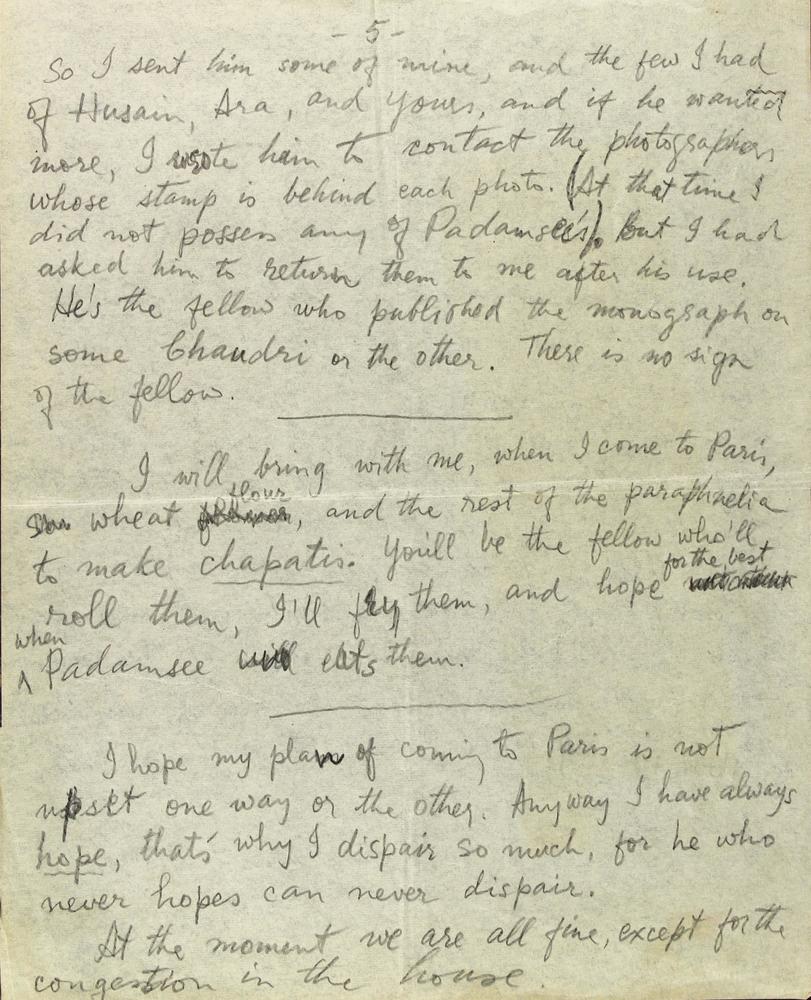 - 5 -
So I sent him some of mine, and the few I had
of Husain, Ara, and yours, and if he wanted
more, I wrote him to contact the photographers
whose stamp is behind each photo. (At that time I
did not possess any of Padamsee's). But I had
asked him to return them to me after his use.
He's the fellow who published the monograph on
some Chaudri or the other. There is no sign
of the fellow.
I will bring with me, when I come to Paris,
wheat flour, and the rest of the paraphnelia
to make chapatis. You'll be the fellow who'll
roll them, I'll fry them, and hope for the best
when Padamsee eats them.
I hope my plan of coming to Paris is not
upset one way or the other. Anyway I have always
hope, that's why I dispair so much, for he who
never hopes can never dispair.
At the moment we are all fine, except for the
congestion in the house.